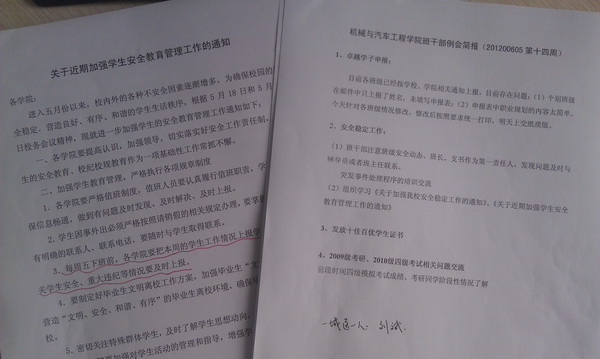 关于近期加强学生安全教育管理工作的通知
各学院:
进入五月份以来，校内外的各种不安全因素逐渐增多，为确保校园的
全稳定，营造良好、有序、和谐的学生生活秩序，根据5月18日和5月
日校务会议精神，现就进一步加强学生的安全教育管理工作通知如下:
一、各学院要提高认识，加强领导，切实落实好安全工作责任制，
生的安全教育、校纪校规教育作为一项基础性工作常抓不懈。
二、加强学生教育管理，严格执行各项规章制度
1、各学院要严格值班制度，值班人员要认真履行值班职责，
保信息畅通，做到有问题及时发现、及时解决、及时上报。
2、学生因事外出必须严格按照请假的相关规定办理，要掌
有明确的联系人、联系电话，要随时与学生取得联系。
3、每周五下班前，各学院要把本周的学生工作情况上报学
关学生安全、重大违纪等情况要及时上报。
4、要制定好毕业生文明离校工作方案，加强毕业生“文
营造“文明、安全、和谐、有序”的毕业生离校环境，确保
校。
5、密切关注特殊群体学生，及时了解学生思想动向，
要加强对学生活动的管理和指导，增强学
机械与汽车工程学院班干部例会简报（201200605 第十四周）
1、卓越学子申报:
目前各班级已经按学校、学院相关通知上报。目前存在问题:（1）个别班级
在邮件中只上报了姓名，未填写申报表;（2）申报表中职业规划的内容太简单。
今天针对各班级情况修改，修改后按照要求统一打印，明天上交纸质版。
2、安全稳定工作:
（1）班干部注意班级安全动态，班长、支书作为第一责任人，发现问题及时与
班主任联系。
突发事件处理程序的培训交流
（2）组织学习《关于加强我校安全稳定工作的通知》、《关于近期加强学生安全
教育管理工作的通知》
3、发放十佳百优学生证书
4、2009级考研、2010级四级考试相关问题交流
前段时间四级模拟考试成绩、考研同学阶段性情况了解